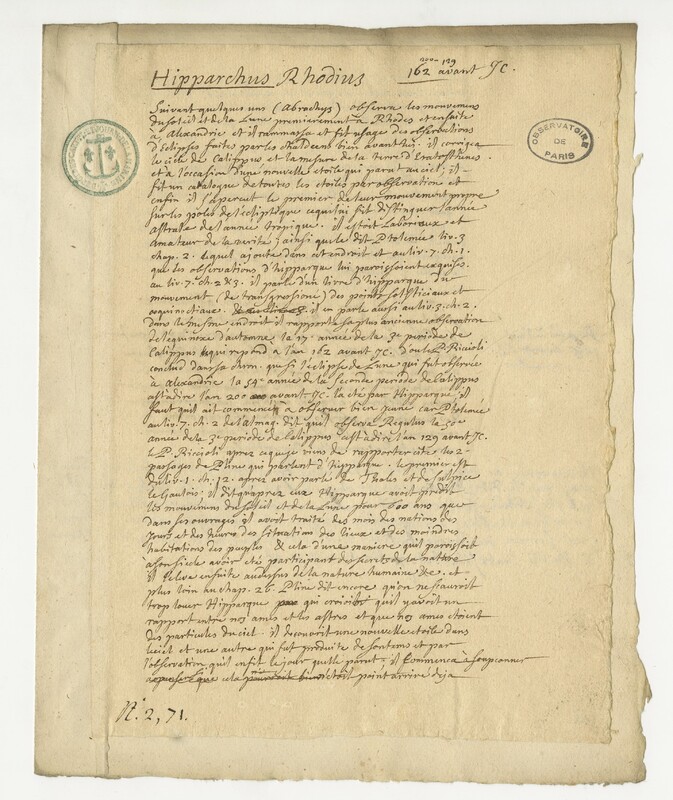 Hipparchus Rhodius
200-129
162 avant JC.
OBSERVATOIRE DE PARIS
Suivant quelques uns (Abrachys) observa les mouvemens
du soleil et de la Lune premierement a Rhodes et ensuite
a Alexandrie et il rammassa et fit usage des observations
d'Eclipses faites par les chaldeens bien avant lui. il corrigea
le cicle de Calippus et la mesure de la terre d'Eratosthenes.
et a l'occasion d'une nouvelle etoile qui parut au ciel; il
fit un catalogue de toutes les etoiles par observation et
enfin il s'aperçut le premier de leur mouvement propre
sur les poles de l'ecliptique ce qui lui fit distinguer l'année
astrale de l'annee tropique. il etoit Laborieux et
amateur de la verité; ainsi que le dit Ptolemée liv. 3
chap. 2. lequel ajoute dans cet endroit et au liv. 7. ch. 1.
que les observations d'hipparque lui paroissoient exquises.
au liv. 7. ch. 2 & 3. il parle d'un livre d'hipparque du
mouvement (de transgression) des points solsticiaux et
equinoctiaux. il en parle aussi au liv. 3. ch. 2.
dans le mesme endroit il rapporte sa plus ancienne observation
de l'equinoxe d'automne la 17 année de la 3e periode de
Calippus qui repond a l'an 162 avant JC. d'ou le P. Riccioli
conclud dans sa chron. que si l'eclipse de Lune qui fut observée
a Alexandrie la 54e année de la seconde periode de Calippus
c'est a dire l'an 200 avant JC. l'a eté par Hipparque, il
faut qu'il ait commencé a observer bien jeune car Ptolemée
au liv. 7. ch. 2 de l'almag. dit qu'il observa Regulus la 50e
année de la 3e periode de Calippus c'est a dire l'an 129 avant JC.
le P. Riccioli aprez ce que je viens de rapporter cite les 2
passages de Pline qui parlent d'Hipparque. le premier est
du liv. 1. ch. 12. aprez avoir parlé de Thales et de sulpice
le Gaulois; il dit qu'aprez eux Hipparque avoit predit
les mouvemens du soleil et de la Lune pour 600 ans que
dans ses ouvrages il avoit traité des mois des nations des
jours et des heures des situation des lieux et des moindres
habitations des peuples & cela d'une maniere qu'il paroissoit
a son siecle avoir eté participant des secrets de la nature
il l'eleve ensuite audessus de la nature humaine &c. et
plus loin au chap. 26. Pline dit encore qu'on ne sauroit
trop louer Hipparque qui croioit qu'il y avoit un
rapport entre nos ames et les astres et que nos ames etoient
des particules du ciel. il decouvrit une nouvelle etoile dans
le ciel et une autre qui fut produite de son tems et par
l'observation qu'il en fit le jour qu'elle parut, il commença a soupconner
que cela n'etoit point arrivé deja
N. 2, 71.